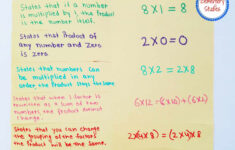 States that if a number
is multiplied by 1, the product
is the number itself.
8 X 1 = 8
States that Product of
any number and zero
is zero.
2 X 0 = 0
States that numbers can
be multiplied in any
order, the product stays the same
8 X 2 = 2 X 8
States that when 1 factor is
rewritten as a sum of two
numbers the product doesnot
change.
6X12 = (6X10) + (6X2)
States that you can change
the grouping of the factors
The product will be the same.
2X(4X8) = (2X4)X8